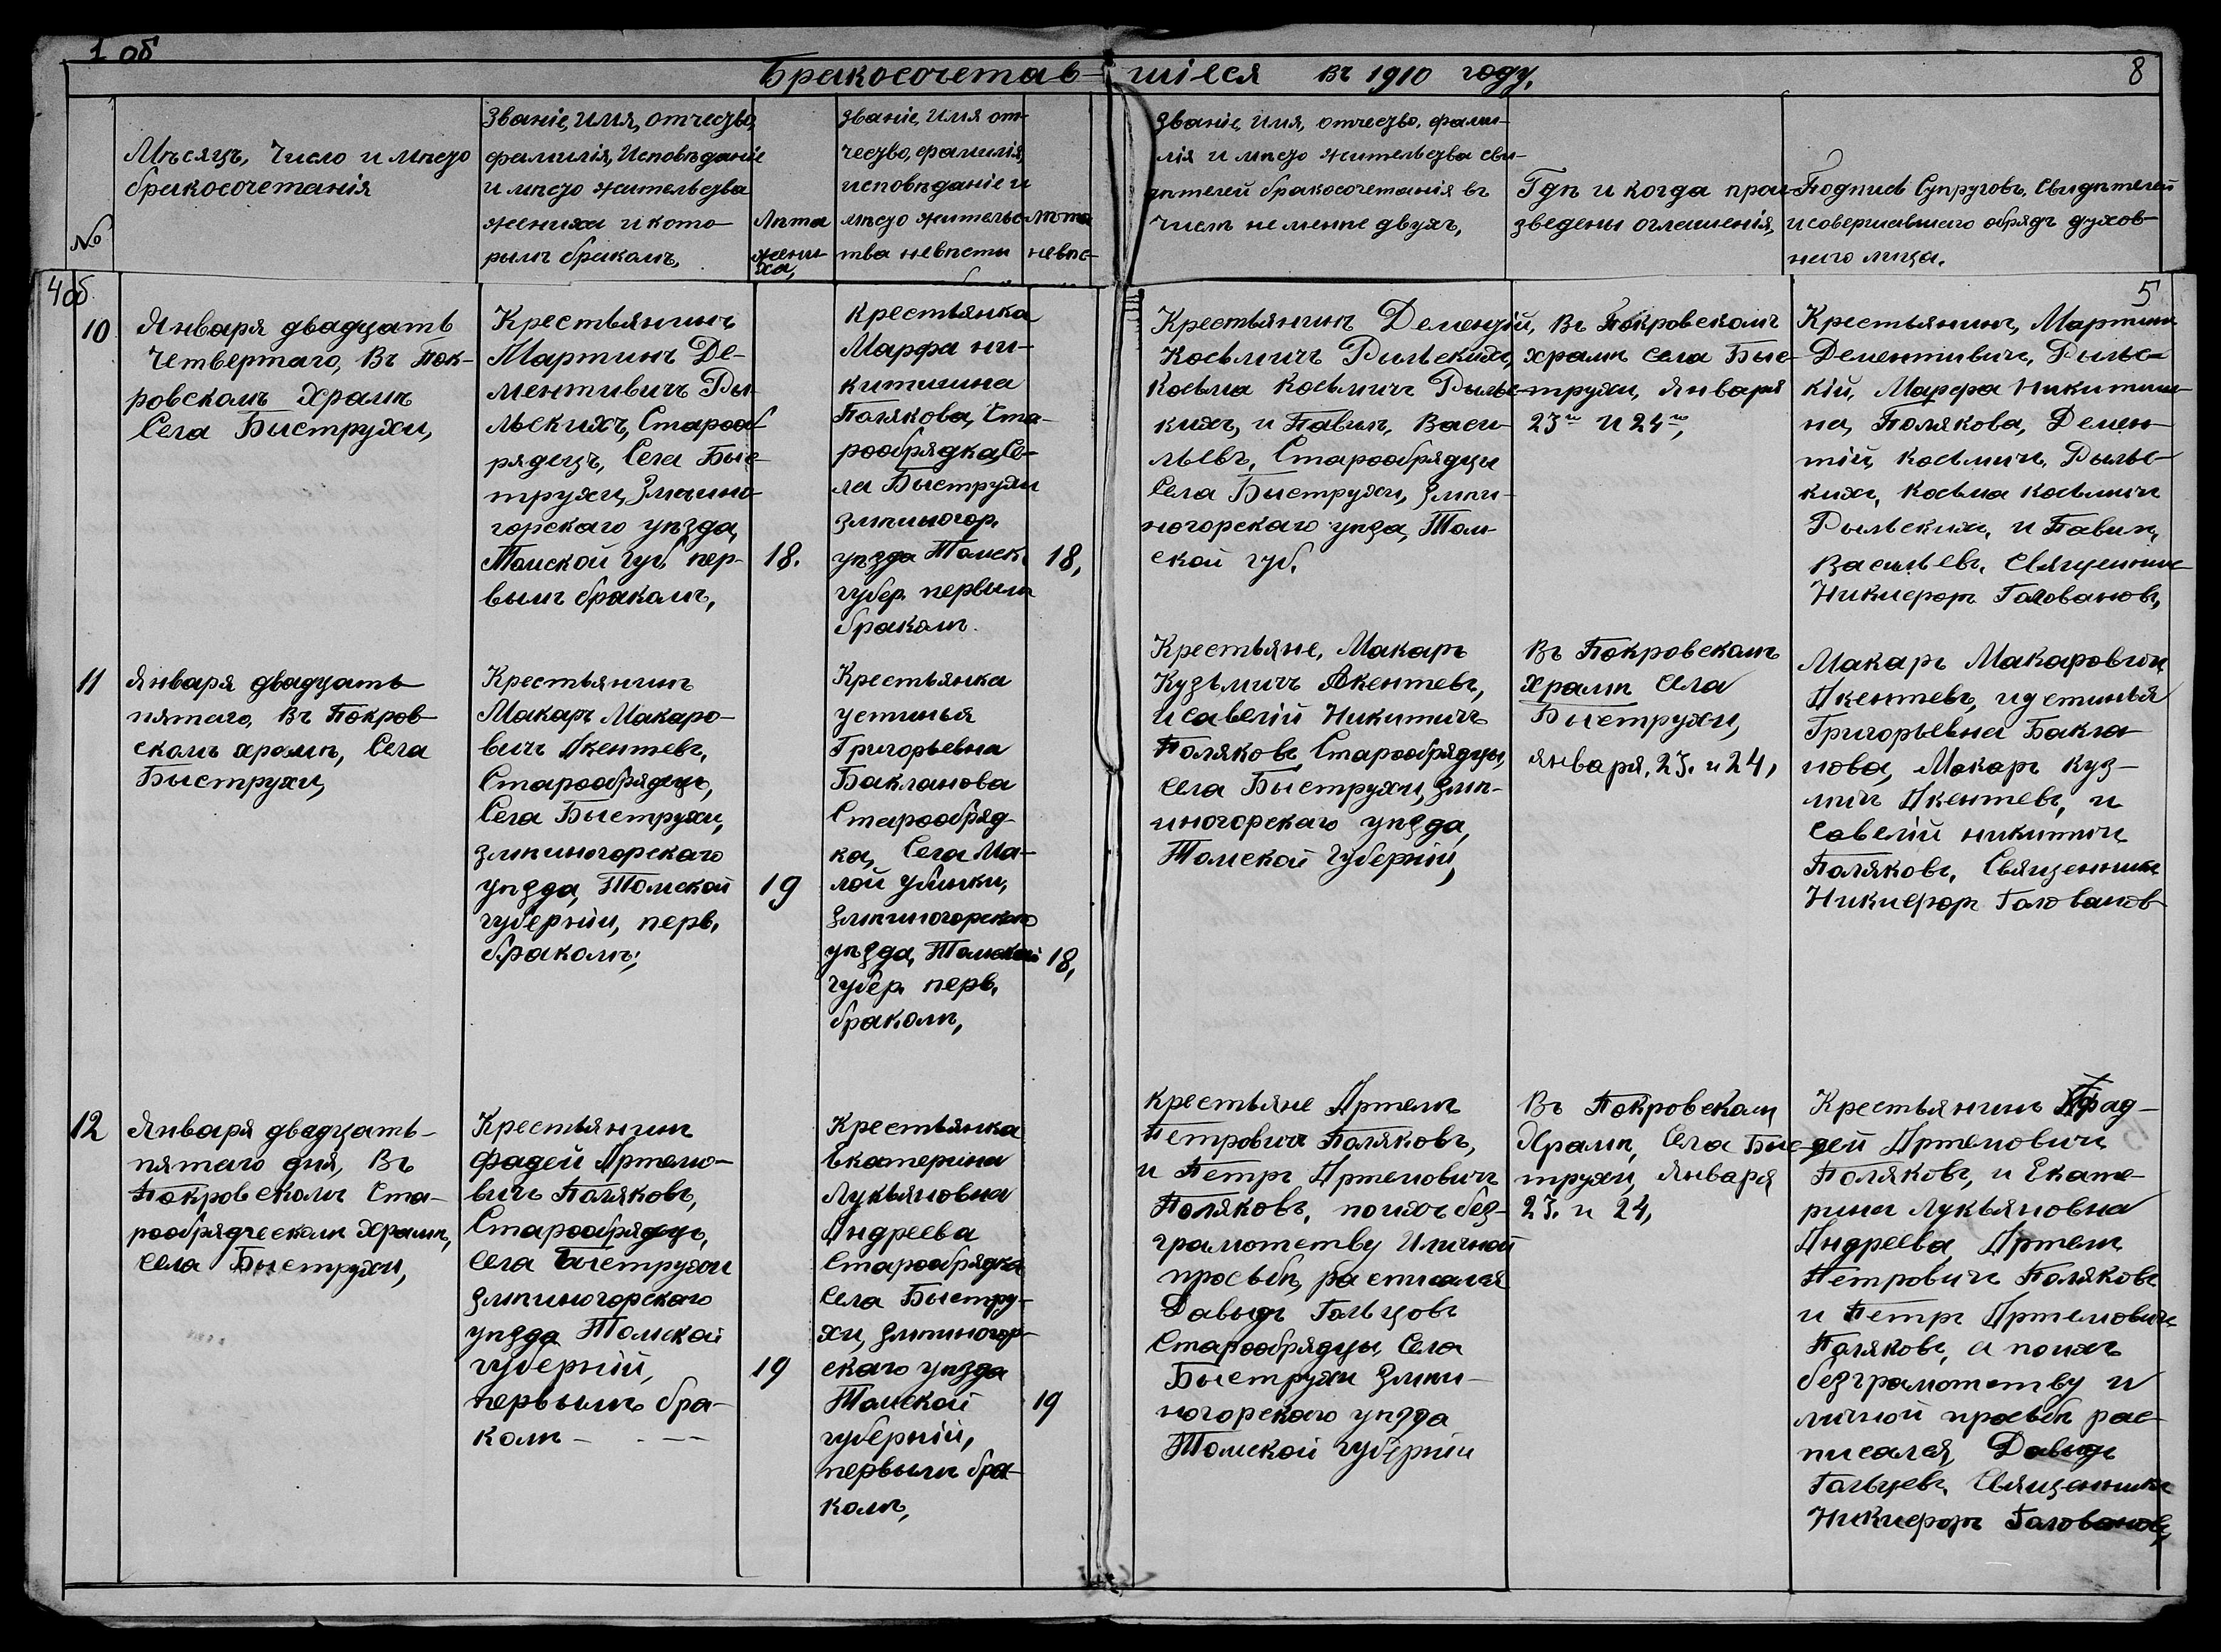 1 об
Бракосочетав-шіеся въ 1910 году.
8
№
Мѣсяцъ, Число и мѣсто
бракосочетанія
Званіе, имя, отчество,
фамилія, Исповѣданіе
и мѣсто жительства
жениха и кото-
рымъ бракомъ,
Лѣта
жени-
ха,
Званіе, Имя от-
чество, фамилія,
исповѣданіе и
мѣсто жительс-
тва невѣсты
лѣта
невѣс-
Званіе, имя, отчество, фами-
лія и мѣсто жительства сви-
дѣтелей бракосочетанія въ
числѣ не менѣе двухъ,
Гдѣ и когда прои-
зведены оглашенія,
Подписи Супруговъ, Свидѣтелей
и совершавшаго обрядъ духов-
наго лица.
4 об.
5
10
Января двадцать
Четвертаго, Въ Пок-
ровскомъ Храмѣ
Села Быструхи,
Крестьянинъ
Мартинъ Де-
ментивичъ Ры-
льскихъ, Старооб-
рядецъ, Села Быс-
трухи, Змѣино-
горскаго уѣзда,
Томской губ. пер-
вымъ бракомъ,
18.
крестьянка
Марфа ни-
китишна
Полякова, Ста-
рообрядка, Се-
ла Быструхи
Змѣиногор.
уѣзда Томск.
губер. первым
бракомъ.
18,
Крестьянинъ Дементій,
Косьмичъ Рыльскихъ,
Косьма Косьмичъ Рыльс-
кихъ, и Павилъ, Васи-
льевъ, Старообрядцы
Села Быструхи, Змѣи-
ногорскаго уѣзда, Том-
ской губ.
Въ Покровскомъ
храмѣ села Быс-
трухи, Января
23го и 24го,
Крестьянинъ, Мартинъ
Дементивичъ, Рыльс-
кій, Марфа Никитиш-
на, Полякова, Демен-
тій, Косьмичъ, Рыльс-
кихъ, Косьма Косьмичъ
Рыльскихъ, и Павилъ,
Васильевъ, Священник
Никифоръ Головановъ,
11
Января двадцать
пятаго, Въ Покров-
скомъ храмѣ, Села
Быструхи,
Крестьянинъ
Макаръ Макаро-
вичъ Акентевъ,
Старообрядецъ,
Села Быструхи,
змѣиногорскаго
уѣзда, Томской
губерніи, перв.
бракомъ;
19
Крестьянка
устинья
Григорьевна
Бакланова
Старообряд-
ка, Села Ма-
лой убинки,
змѣиногорскаго
уѣзда, Томской
губер. перв.
бракомъ,
18,
Крестьяне, Макаръ
Кузьмичъ Акентевъ,
и савелій Никитичъ
Поляковъ, Старообрядцы,
села Быструхи, Змѣ-
иногорскаго уѣзда,
Томской Губерніи,
Въ Покровскомъ
храмѣ Села
Быструхи,
января, 23. и 24,
Макаръ Макаровичъ
Акентевъ, и устинья
Григорьевна Бакла-
нова, Макаръ куз-
мичъ Акентевъ, и
Савелій никитичъ
Поляковъ, Священник
Никифоръ Головановъ
12
Января двадцать-
пятаго дня, Въ
Покровскомъ Ста-
рообрядческомъ Храмѣ,
Села Быструхи,
Крестьянинъ
Фадей Артемо-
вичъ Поляковъ,
Старообрядецъ,
села Быструхи
змѣиногорскаго
уѣзда Томской
губерніи,
первымъ бра-
комъ -
19
Крестьянка
Екатерина
Лукьяновна
Андреева
Старообрядка
Села Быстру-
хи, змѣиногор-
скаго уѣзда
Томской
губерніи,
первымъ бра-
комъ,
19
крестьяне Артемъ
Петровичъ Поляковъ,
и Петръ Артемовичъ
Поляковъ, поихъ без-
грамотству Иличной
просьбѣ, расписался
Давыдъ Гольцовъ
Старообрядцы, Села
Быструхи Змѣи-
ногорскаго уѣзда
Томской Губерніи
Въ Покровскомъ
Храмѣ, Села Быс-
трухи, Января
23. и 24,
Крестьянинъ Фад-
дей Артемовичъ
Поляковъ, и Екате-
рина Лукьяновна
Андреева, Артемъ
Петровичъ Поляковъ
и Петръ Артемовичъ
Поляковъ, а поихъ
безграмотству и
личной просьбѣ рас-
писался, Давыдъ
Гольцевъ, Священникъ
Никифоръ Головановъ,